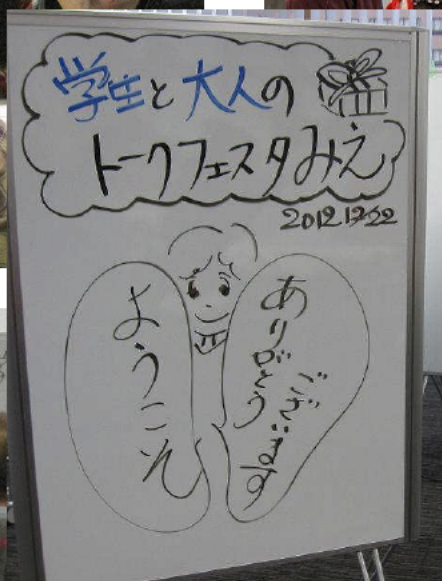 学生と大人の
トークフェスタみえ
2012.12.22
ようこそ
ありがとう
ございます